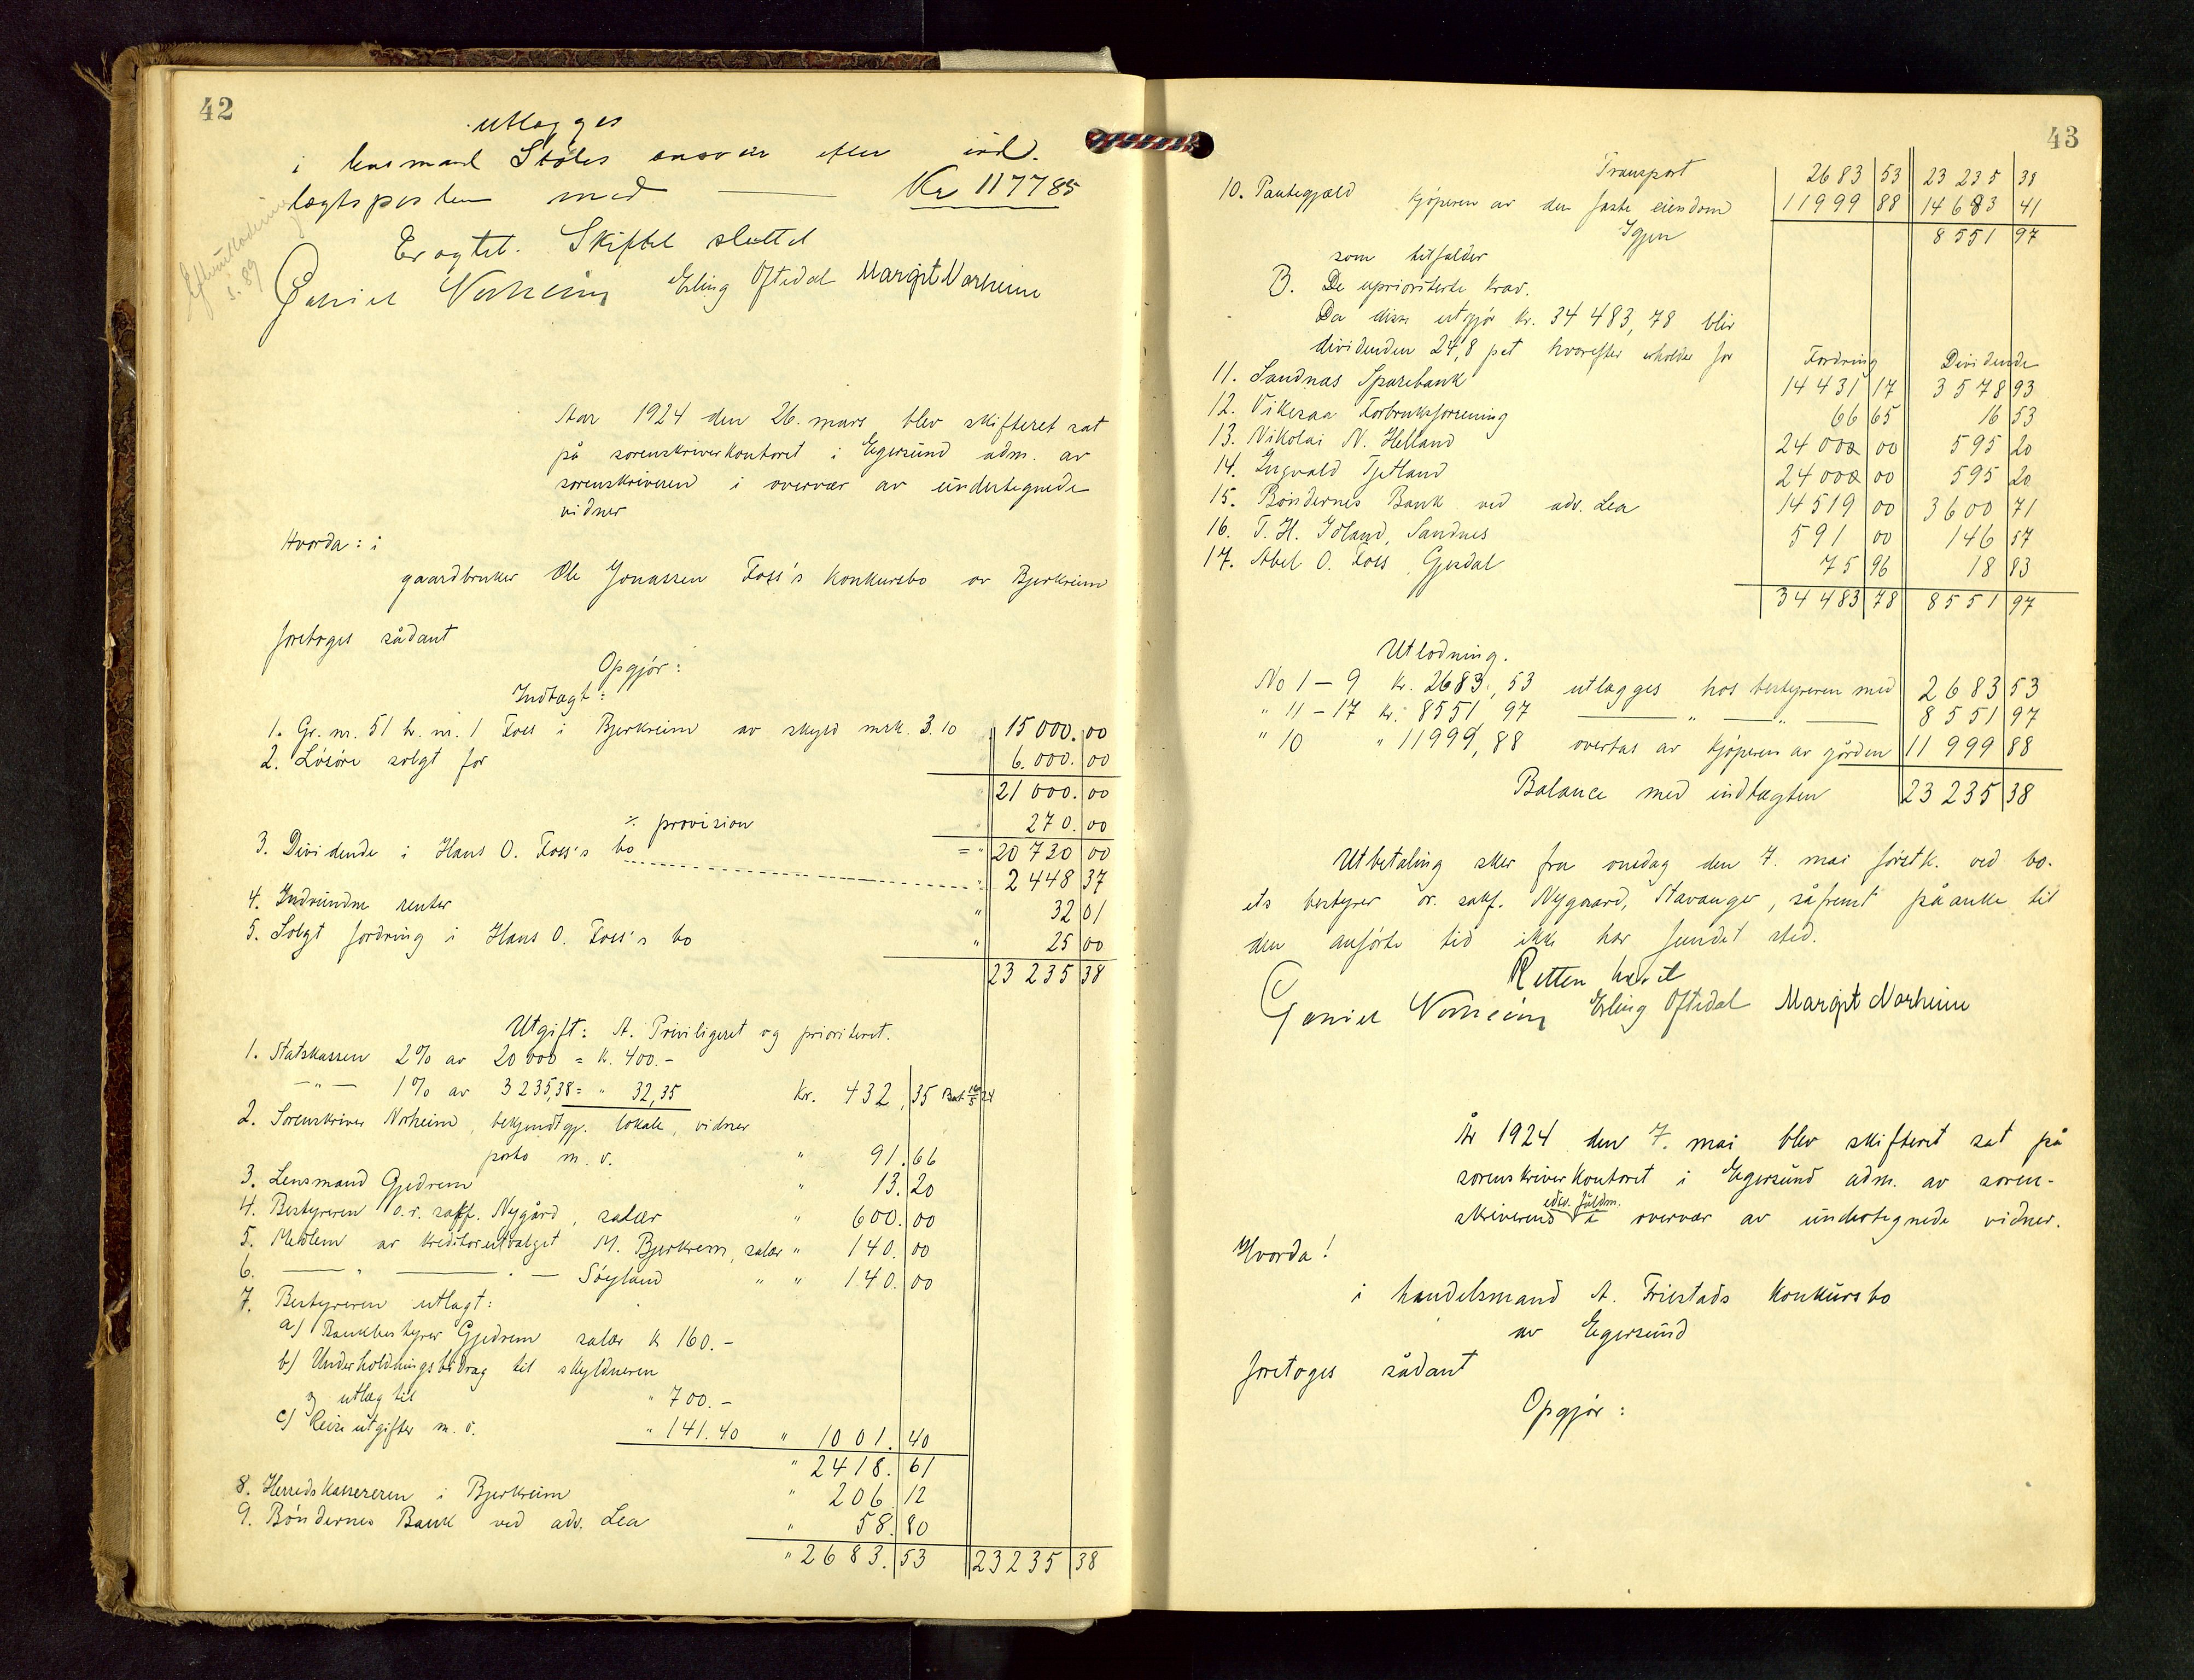 42
utlægges
i lensmand Stöles ansvar efter ind-
lægtsposten med Kr 117785
Eragtet. Skiftet sluttet
Efterutlodning
s. 89
Daniel Norheim Erling Oftedal Margit Norheim
Aar 1924 den 26. mars blev skifteret sat
på sorenskriverkontoret i Egersund adm. av
sorenskriveren i overvær av undertegnede
vidner
Hvorda: i
gaardbruker Ole Jonassen Foss's konkursbo av Bjerkreim
foretoges sådant
Opgjör:
Indtægt:
1. Gr. nr. 51 br. nr. 1 Foss i Bjerkreim av skyld mrk. 3.10 15 000.00
2. Lösöre solgt for 6.000.00
21 000.00
÷ provision 270.00
= " 20 730 00
3. Dividende i Hans O. Foss's bo " 2 448 37
4. Indvundne renter " 32 01
5. Solgt fordring i Hans O. Foss's bo " 25 00
23 235 38
Utgift: A. Priviligeret og prioriteret.
1. Statskassen 2% av 20 000 = kr. 400.-
-"- 1% av 3235,38 = " 32,35 Kr. 432,35 Bet. 16/5 24
2. Sorenskriver Norheim, bekjendtgj. lokale, vidner
porto m. v. " 91.66
3. Lensmand Gjedrem " 13.20
4. Bestyreren o.r. sakf. Nygård, salær " 600.00
5. Medlem av kreditorutvalget M. Bjerkrem, salær " 140.00
6. — " — " — Söyland " " 140.00
7. Bestyreren utlagt:
a) Bankbestyrer Gjedrem salær kr 160.-
b) Underholdningsbidrag til skyldneren
og utlæg til " 700.-
c) Reiseutgifter m. v. " 141.40 " 1001.40
" 2418.61
8. Herredskassereren i Bjerkreim " 206.12
9. Böndernes Bank ved adv. Lea " 58.80
" 2683.53 23235 38
43
Transport 2683 53 23 235 38
10. Pantegjæld kjöperen av den faste eiendom 11999 88 14 683 41
Igjen 8 551 97
som tilfalder
B. De uprioriterte krav.
Da disse utgjör kr. 34 483,78 blir
dividenden 24,8 pct hvorefter erholdes for Fordring Dividende
11. Sandnæs Sparebank 14 431 17 3 578 93
12. Vikesaa Forbruksforening 66 65 16 53
13. Nikolai N. Helland 24 000 00 595 20
14. Ingvald Tjetland 24 000 00 595 20
15. Böndernes Bank ved adv. Lea 14 519 00 3600 71
16. T. H. Idland, Sandnes 591 00 146 57
17. Abel O. Foss Gjesdal 75 96 18 83
34 483 78 8551 97
Utlodning.
No 1 – 9 kr. 2683,53 utlægges hos bestyreren med 2683 53
" 11 – 17 kr. 8551,97 — " — " — 8551 97
" 10 " 11999,88 overtas av kjöperen av gården 11 999 88
Balance med indtægten 23 235 38
Utbetaling sker fra onsdag den 7. mai förstk. ved bo-
ets bestyrer or. sakf. Nygaard, Stavanger, såfremt påanke til
den anförte tid ikke har fundet sted.
Retten hævet
Daniel Norheim Erling Oftedal Margit Norheim
År 1924 den 7. mai blev skifteret sat på
sorenskriverkontoret i Egersund adm. av soren-
edsv. fuldm.
skriverens i overvær av undertegnede vidner.
Hvorda!
i handelsmand A. Friestads konkursbo
av Egersund
foretoges sådant
Opgjör: